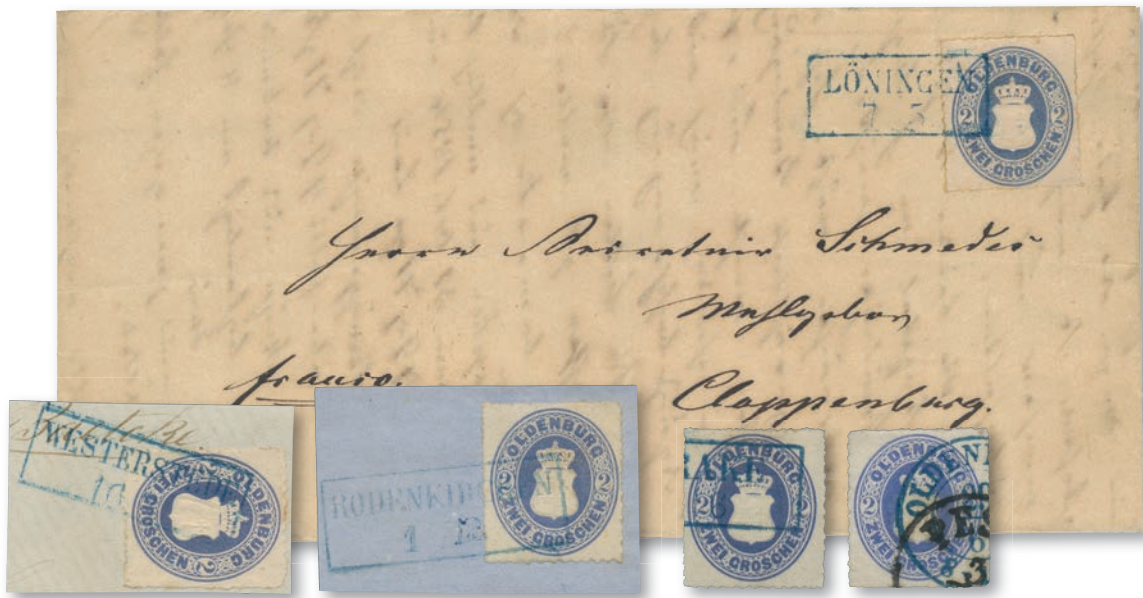 LÖNINGEN
7 5
OLDENBURG
2 2
ZWEI GROSCHEN
Herrn Secretair Schmedes
Wohlgeboren
franco.
Cloppenburg.
WESTERSTEDE
10
OLDENBURG
2 2
ZWEI GROSCHEN
RODENKIRCHEN
1
OLDENBURG
2 2
ZWEI GROSCHEN
BRAKE
OLDENBURG
2 2
ZWEI GROSCHEN
OLDENBURG
2 2
ZWEI GROSCHEN
OLDEN